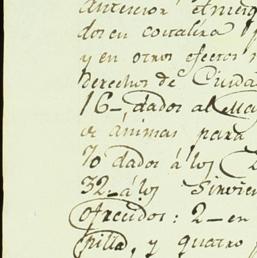 anterior
dos en
y en otros efectos
Derechos de Ciuda
16 – dados al
de ánimas para
70 dados á los
32 – á los Sirvien
ofrecidos: 2 – en
pilla, y quatro